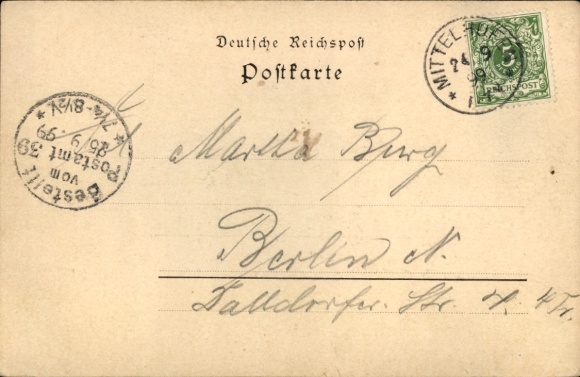 Deutsche Reichspost
Postkarte
MITTELHUF
24 9
99
5
REICHSPOST
Bestellt
vom
Postamt 39
25/9.99
* 7¼-8½V *
Martha Burg
Berlin N.
Dalldorfer Str. 4 Tr.